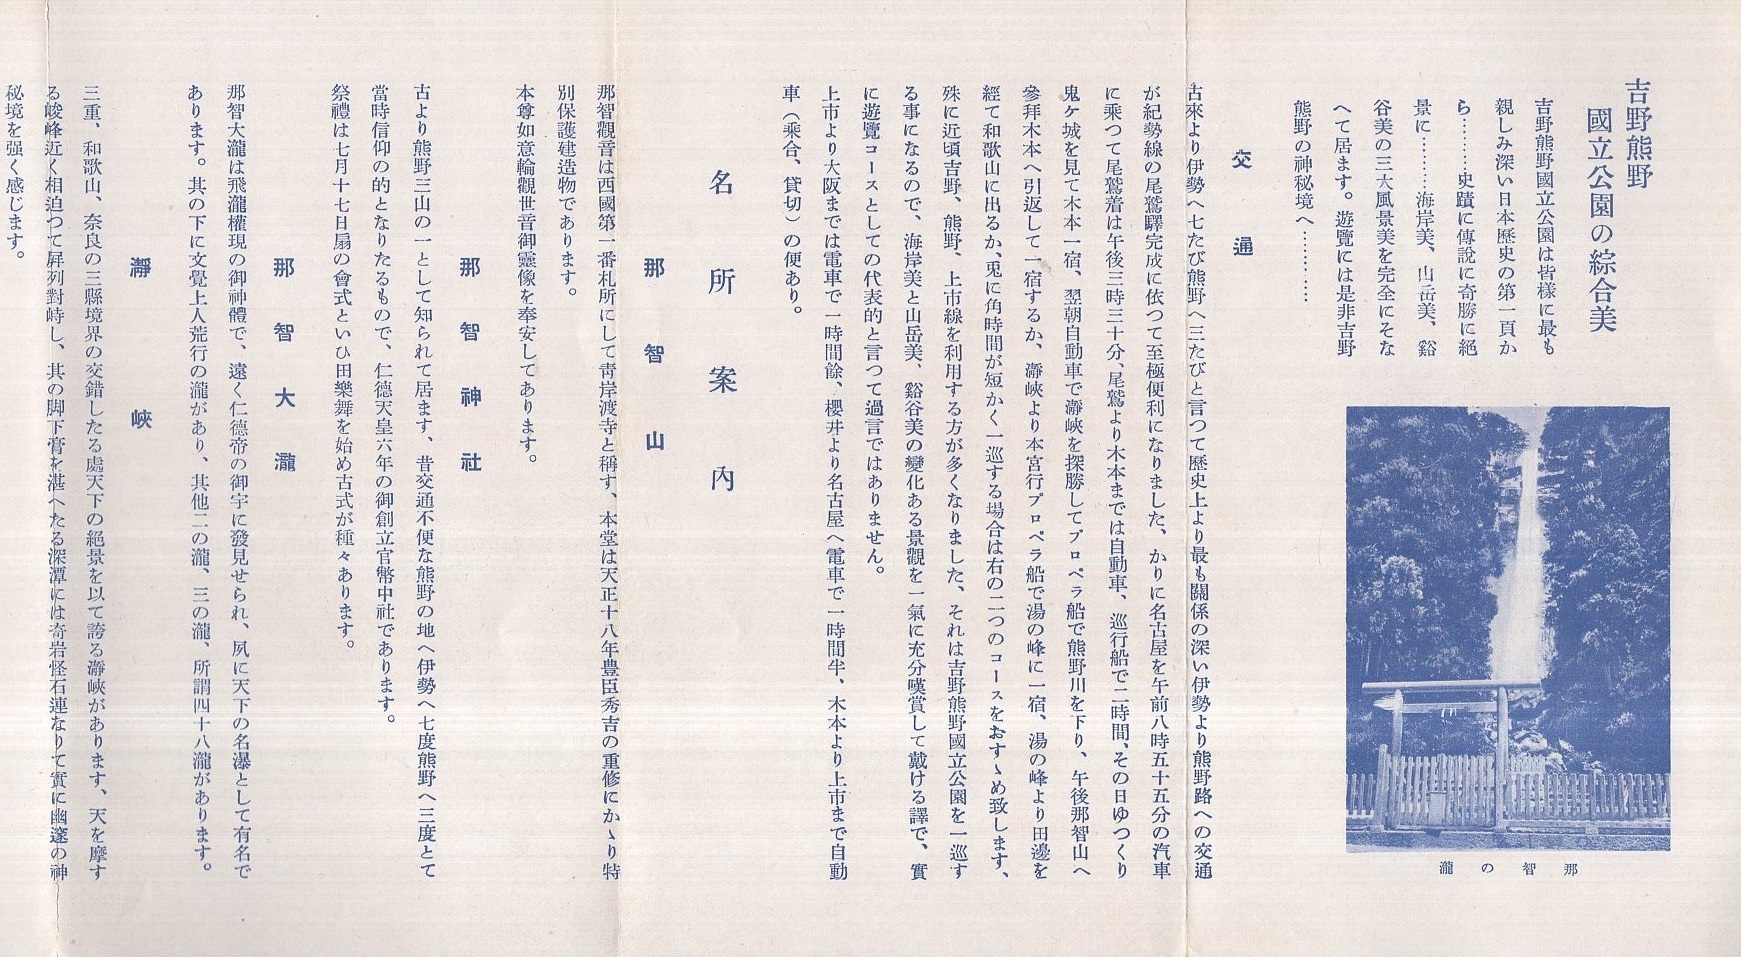 吉野熊野
國立公園の綜合美
吉野熊野國立公園は皆様に最も
親しみ深い日本歷史の第一頁か
ら………史蹟に傳說に奇勝に絕
景に………海岸美、山岳美、谿
谷美の三大風景美を完全にそな
へて居ます。遊覽には是非吉野
熊野の神秘境へ…………
那智の瀧
交通
古來より伊勢へ七たび熊野へ三たびと言つて歷史上より最も關係の深い伊勢より熊野路への交通
が紀勢線の尾鷲驛完成に依つて至極便利になりました、かりに名古屋を午前八時五十五分の汽車
に乘つて尾鷲着は午後三時三十分、尾鷲より木本までは自動車、巡行船で二時間、その日ゆつくり
鬼ケ城を見て木本一宿、翌朝自動車で瀞峽を探勝してプロペラ船で熊野川を下り、午後那智山へ
參拜木本へ引返して一宿するか、瀞峽より本宮行プロペラ船で湯の峰に一宿、湯の峰より田邊を
經て和歌山に出るか、兎に角時間が短かく一巡する場合は右の二つのコースをおすゝめ致します、
殊に近頃吉野、熊野、上市線を利用する方が多くなりました、それは吉野熊野國立公園を一巡す
る事になるので、海岸美と山岳美、谿谷美の變化ある景觀を一氣に充分嘆賞して戴ける譯で、實
に遊覽コースとしての代表的と言つて過言ではありません。
上市より大阪までは電車で一時間餘、櫻井より名古屋へ電車で一時間半、木本より上市まで自動
車（乘合、貸切）の便あり。
名所案內
那智山
那智觀音は西國第一番札所にして靑岸渡寺と稱す、本堂は天正十八年豊臣秀吉の重修にかゝり特
別保護建造物であります。
本尊如意輪觀世音御靈像を奉安してあります。
那智神社
古より熊野三山の一として知られて居ます、昔交通不便な熊野の地へ伊勢へ七度熊野へ三度とて
當時信仰の的となりたるもので、仁德天皇六年の御創立官幣中社であります。
祭禮は七月十七日扇の會式といひ田樂舞を始め古式が種々あります。
那智大瀧
那智大瀧は飛瀧權現の御神體で、遠く仁德帝の御宇に發見せられ、夙に天下の名瀑として有名で
あります。其の下に文覺上人荒行の瀧があり、其他二の瀧、三の瀧、所謂四十八瀧があります。
瀞峽
三重、和歌山、奈良の三縣境界の交錯したる處天下の絕景を以て誇る瀞峽があります、天を摩す
る峻峰近く相迫つて屛列對峙し、其の脚下膏を湛へたる深潭には奇岩怪石連なりて實に幽邃の神
秘境を强く感じます。